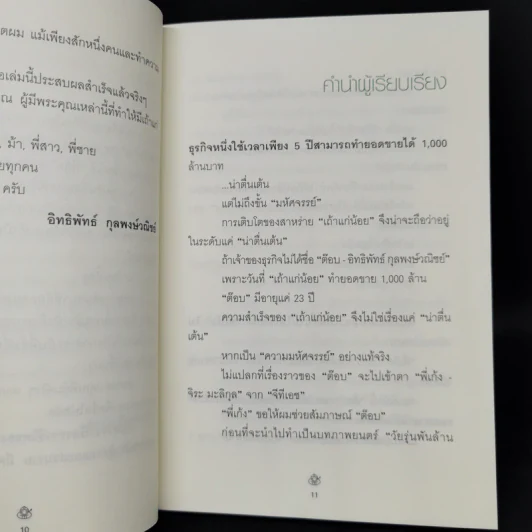 ตผม แม้เพียงสักหนึ่งคนและทำความ
อเล่มนี้ประสบผลสำเร็จแล้วจริงๆ
ณ ผู้มีพระคุณเหล่านี้ที่ทำให้มีเถ้าแก่
ม้า, พี่สาว, พี่ชาย
ยทุกคน
ครับ
อิทธิพัทธ์ กุลพงษ์วณิชย์
10
คำนำผู้เรียบเรียง
ธุรกิจหนึ่งใช้เวลาเพียง 5 ปีสามารถทำยอดขายได้ 1,000
ล้านบาท
...น่าตื่นเต้น
แต่ไม่ถึงขั้น "มหัศจรรย์"
การเติบโตของสาหร่าย "เถ้าแก่น้อย" จึงน่าจะถือว่าอยู่
ในระดับแค่ "น่าตื่นเต้น"
ถ้าเจ้าของธุรกิจไม่ได้ชื่อ "ต๊อบ - อิทธิพัทธ์ กุลพงษ์วณิชย์"
เพราะวันที่ "เถ้าแก่น้อย" ทำยอดขาย 1,000 ล้าน
"ต๊อบ" มีอายุแค่ 23 ปี
ความสำเร็จของ "เถ้าแก่น้อย" จึงไม่ใช่เรื่องแค่ "น่าตื่น
เต้น"
หากเป็น "ความมหัศจรรย์" อย่างแท้จริง
ไม่แปลกที่เรื่องราวของ "ต๊อบ" จะไปเข้าตา "พี่เก้ง -
จิระ มะลิกุล" จาก "จีทีเอช"
"พี่เก้ง" ขอให้ผมช่วยสัมภาษณ์ "ต๊อบ"
ก่อนที่จะนำไปทำเป็นบทภาพยนตร์ "วัยรุ่นพันล้าน
11